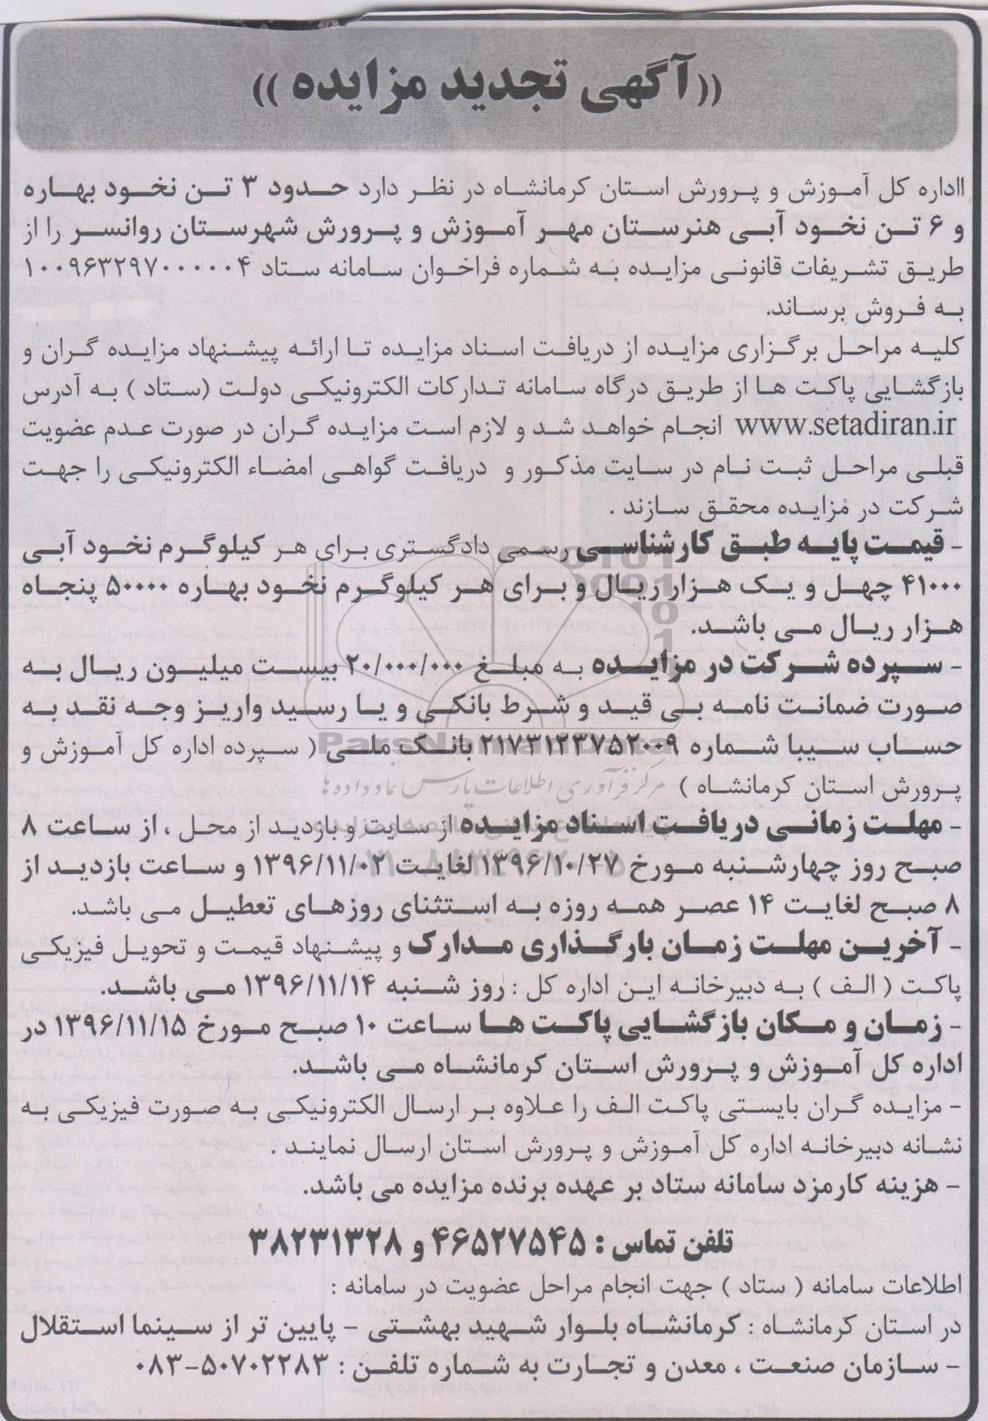 ((آگهی تجدید مزایده ))
ااداره کل آموزش و پرورش استان کرمانشاه در نظر دارد حدود ۳ تن نخود بهاره
و ۶ تن نخود آبی هنرستان مهر آموزش و پرورش شهرستان روانسر را از
طریق تشریفات قانونی مزایده به شماره فراخوان سامانه ستاد ۱۰۰۹۶۳۲۹۷۰۰۰۰۰۴
به فروش برساند.
کلیه مراحل برگزاری مزایده از دریافت اسناد مزایده تا ارائه پیشنهاد مزایده گران و
بازگشایی پاکت ها از طریق درگاه سامانه تدارکات الکترونیکی دولت (ستاد ) به آدرس
www.setadiran.ir انجام خواهد شد و لازم است مزایده گران در صورت عدم عضویت
قبلی مراحل ثبت نام در سایت مذکور و دریافت گواهی امضاء الکترونیکی را جهت
شرکت در مزایده محقق سازند .
- قیمت پایه طبق کارشناسی رسمی دادگستری برای هر کیلوگرم نخود آبی
۴۱۰۰۰ چهل و یک هزار ریال و برای هر کیلوگرم نخود بهاره ۵۰۰۰۰ پنجاه
هزار ریال می باشد.
- سپرده شرکت در مزایده به مبلغ ۲۰/۰۰۰/۰۰۰ بیست میلیون ریال به
صورت ضمانت نامه بی قید و شرط بانکی و یا رسید واریز وجه نقد به
حساب سیبا شماره ۲۱۷۳۱۲۳۷۵۲۰۰۹ بانک ملی ( سپرده اداره کل آموزش و
پرورش استان کرمانشاه ) مرکز فرآوری اطلاعات پارس نماد داده ها
- مهلت زمانی دریافت اسناد مزایده از سایت و بازدید از محل ، از ساعت ۸
صبح روز چهارشنبه مورخ ۱۳۹۶/۱۰/۲۷ لغایت ۱۳۹۶/۱۱/۰۲ و ساعت بازدید از
۸ صبح لغایت ۱۴ عصر همه روزه به استثنای روزهای تعطیل می باشد.
- آخرین مهلت زمان بارگذاری مدارک و پیشنهاد قیمت و تحویل فیزیکی
پاکت ( الف ) به دبیرخانه این اداره کل : روز شنبه ۱۳۹۶/۱۱/۱۴ می باشد.
- زمان و مکان بازگشایی پاکت ها ساعت ۱۰ صبح مورخ ۱۳۹۶/۱۱/۱۵ در
اداره کل آموزش و پرورش استان کرمانشاه می باشد.
- مزایده گران بایستی پاکت الف را علاوه بر ارسال الکترونیکی به صورت فیزیکی به
نشانه دبیرخانه اداره کل آموزش و پرورش استان ارسال نمایند .
- هزینه کارمزد سامانه ستاد بر عهده برنده مزایده می باشد.
تلفن تماس : ۴۶۵۲۷۵۴۵ و ۳۸۲۳۱۳۲۸
اطلاعات سامانه ( ستاد ) جهت انجام مراحل عضویت در سامانه :
در استان کرمانشاه : کرمانشاه بلوار شهید بهشتی - پایین تر از سینما استقلال
- سازمان صنعت ، معدن و تجارت به شماره تلفن : ۵۰۷۰۲۲۸۳-۰۸۳